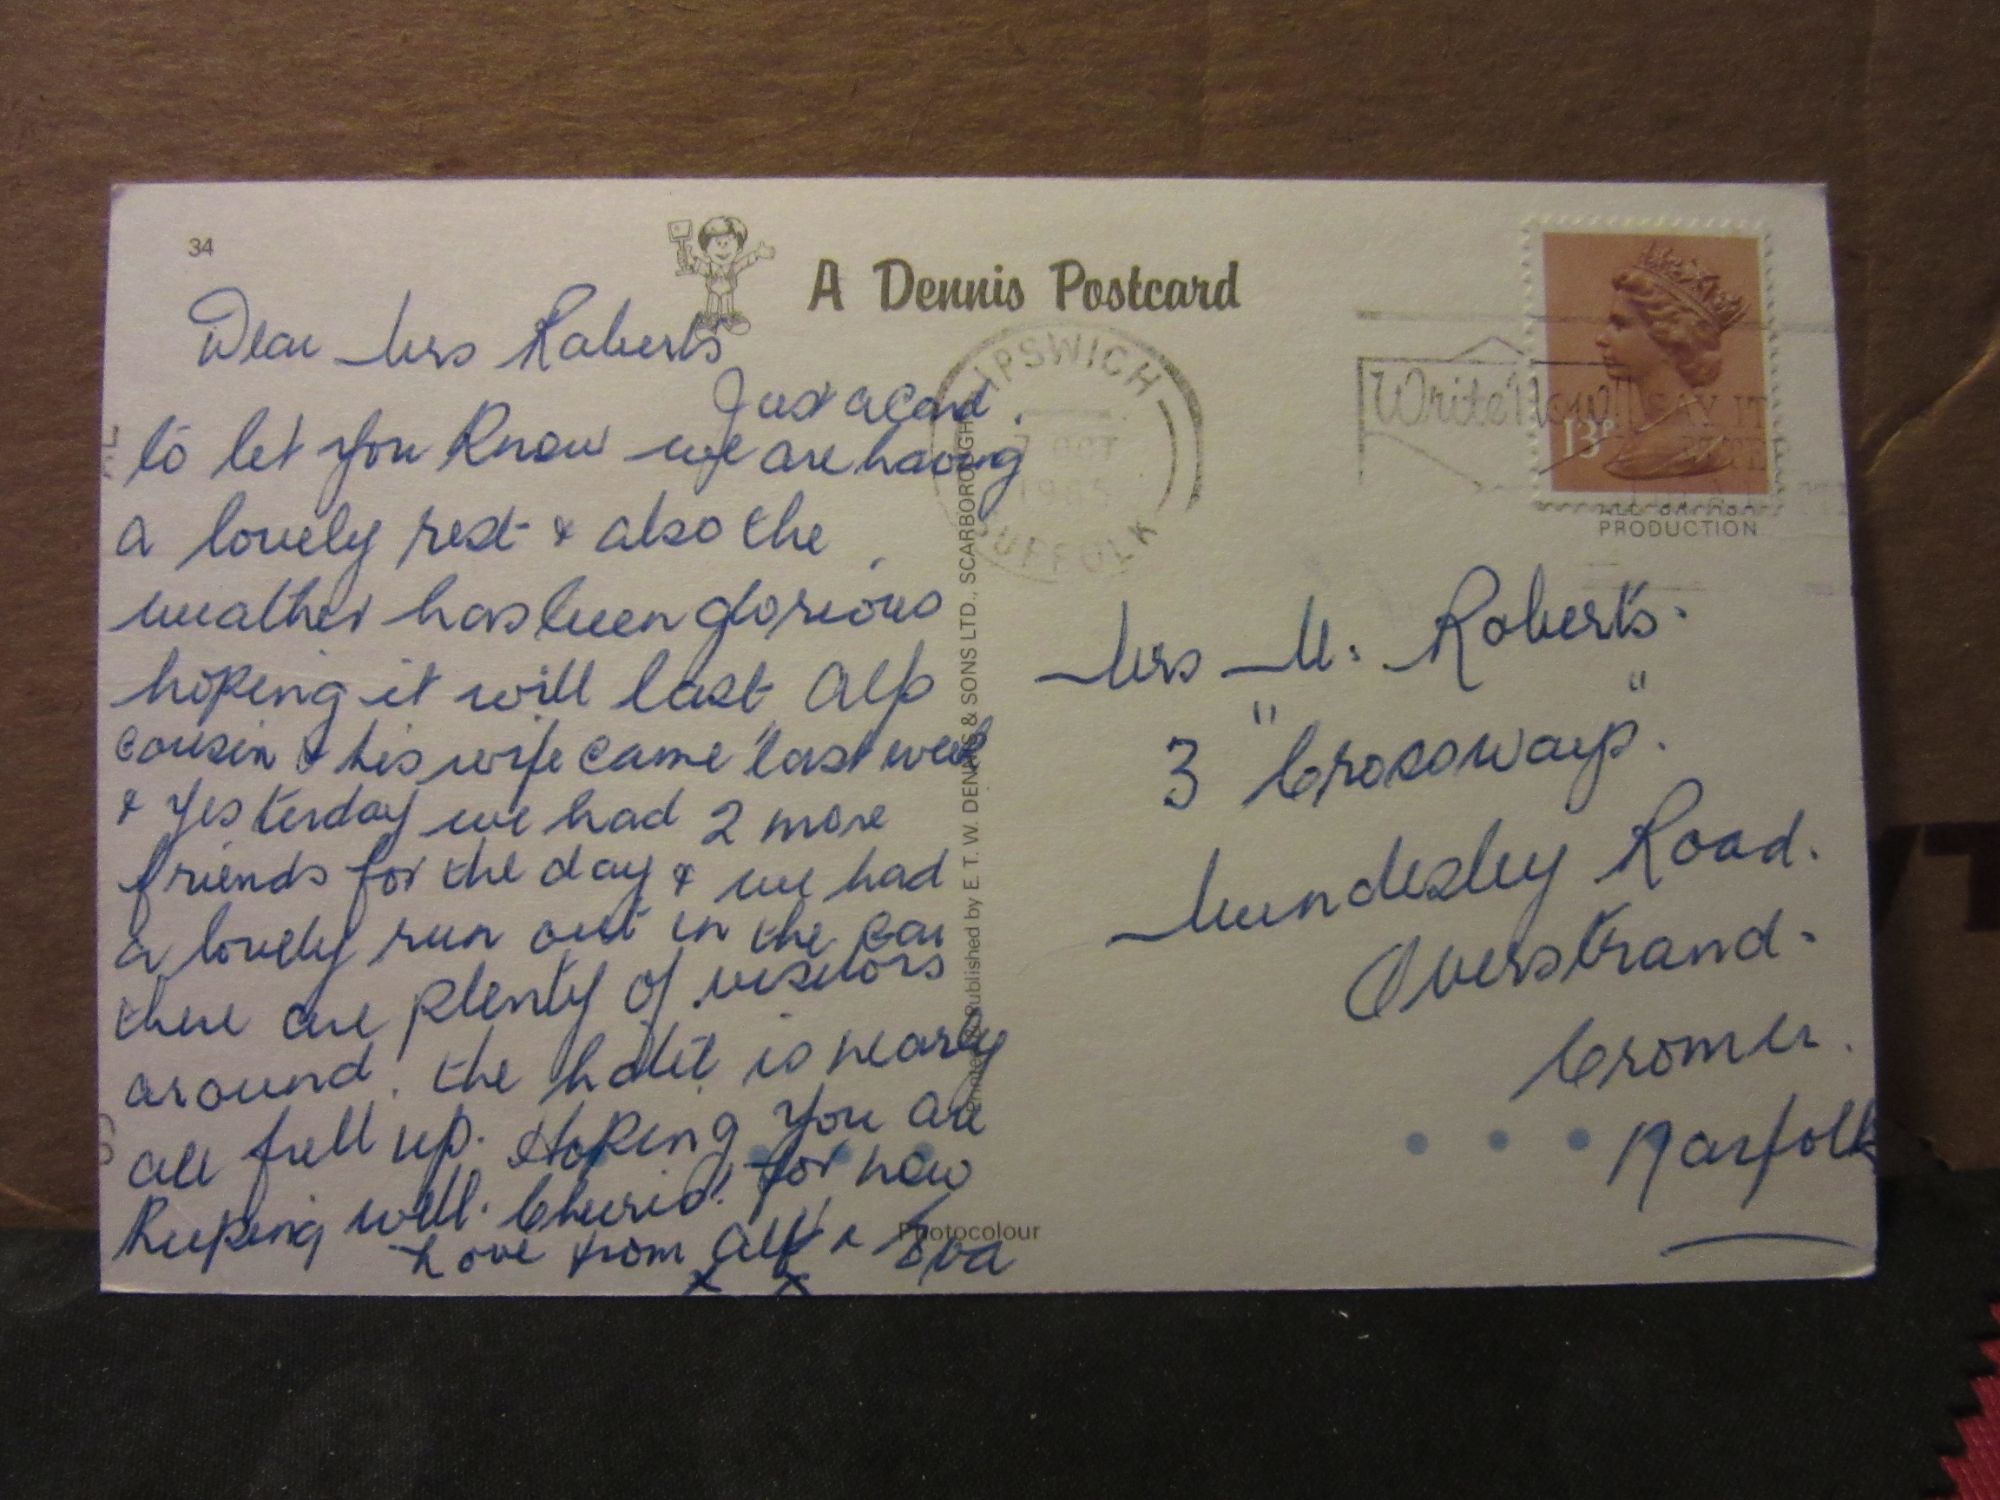 34
A Dennis Postcard
Dear Mrs Roberts
Just a Card.
to let you Know we are having
a lovely rest & also the
weather has been glorious
hoping it will last Alf
Cousin & his wife came last week
& yesterday we had 2 more
friends for the day & we had
a lovely run out in the Car
there are plenty of visitors
around. the hotel is nearly
all full up. Hoping you are
Keeping well. Cheerio! for now
Love from Alf & Eva
x x
Printed & Published by E. T. W. DENNIS & SONS LTD., SCARBOROUGH
Photocolour
IPSWICH
7 OCT
1985
SUFFOLK
Write Now SAY IT
13P
PRODUCTION
Mrs M. Roberts.
3 "Crossways".
Mundesley Road.
Overstrand.
Cromer.
Norfolk